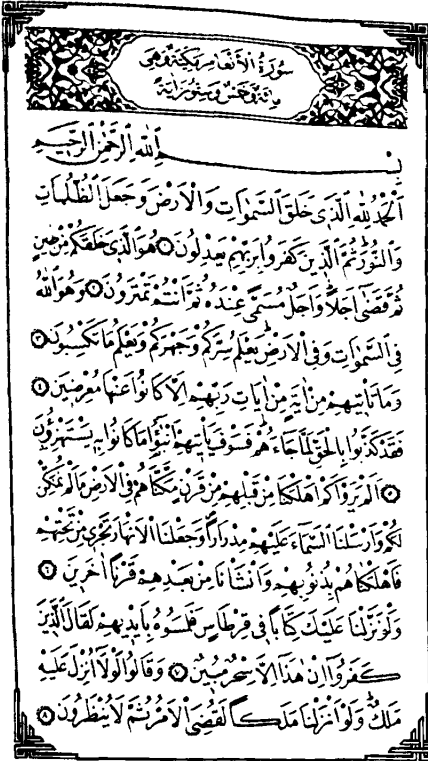 سُورَةُ الْاَنْعَامِ مَكِّيَّةٌ وَهِىَ
مِائَةٌ وَخَمْسٌ وَسِتُّونَ اٰيَةً
بِسْمِ اللّٰهِ الرَّحْمٰنِ الرَّحِيمِ
اَلْحَمْدُ لِلّٰهِ الَّذِى خَلَقَ السَّمٰوَاتِ وَالْاَرْضَ وَجَعَلَ الظُّلُمَاتِ
وَالنُّورَ ثُمَّ الَّذِينَ كَفَرُوا بِرَبِّهِمْ يَعْدِلُونَ ١ هُوَ الَّذِى خَلَقَكُمْ مِنْ طِينٍ
ثُمَّ قَضٰٓى اَجَلًا وَاَجَلٌ مُسَمًّى عِنْدَهُ ثُمَّ اَنْتُمْ تَمْتَرُونَ ٢ وَهُوَ اللّٰهُ
فِى السَّمٰوَاتِ وَفِى الْاَرْضِ يَعْلَمُ سِرَّكُمْ وَجَهْرَكُمْ وَيَعْلَمُ مَا تَكْسِبُونَ ٣
وَمَا تَاْتِيهِمْ مِنْ اٰيَةٍ مِنْ اٰيَاتِ رَبِّهِمْ اِلَّا كَانُوا عَنْهَا مُعْرِضِينَ ٤
فَقَدْ كَذَّبُوا بِالْحَقِّ لَمَّا جَٓاءَهُمْ فَسَوْفَ يَاْتِيهِمْ اَنْبٰٓؤُا مَا كَانُوا بِهِ يَسْتَهْزِؤُنَ
٥ اَلَمْ يَرَوْا كَمْ اَهْلَكْنَا مِنْ قَبْلِهِمْ مِنْ قَرْنٍ مَكَّنَّاهُمْ فِى الْاَرْضِ مَا لَمْ نُمَكِّنْ
لَكُمْ وَاَرْسَلْنَا السَّمَٓاءَ عَلَيْهِمْ مِدْرَارًا وَجَعَلْنَا الْاَنْهَارَ تَجْرِى مِنْ تَحْتِهِمْ
فَاَهْلَكْنَاهُمْ بِذُنُوبِهِمْ وَاَنْشَاْنَا مِنْ بَعْدِهِمْ قَرْنًا اٰخَرِينَ ٦
وَلَوْ نَزَّلْنَا عَلَيْكَ كِتَابًا فِى قِرْطَاسٍ فَلَمَسُوهُ بِاَيْدِيهِمْ لَقَالَ الَّذِينَ
كَفَرُٓوا اِنْ هٰذَٓا اِلَّا سِحْرٌ مُبِينٌ ٧ وَقَالُوا لَوْلَٓا اُنْزِلَ عَلَيْهِ
مَلَكٌ وَلَوْ اَنْزَلْنَا مَلَكًا لَقُضِىَ الْاَمْرُ ثُمَّ لَا يُنْظَرُونَ ٨